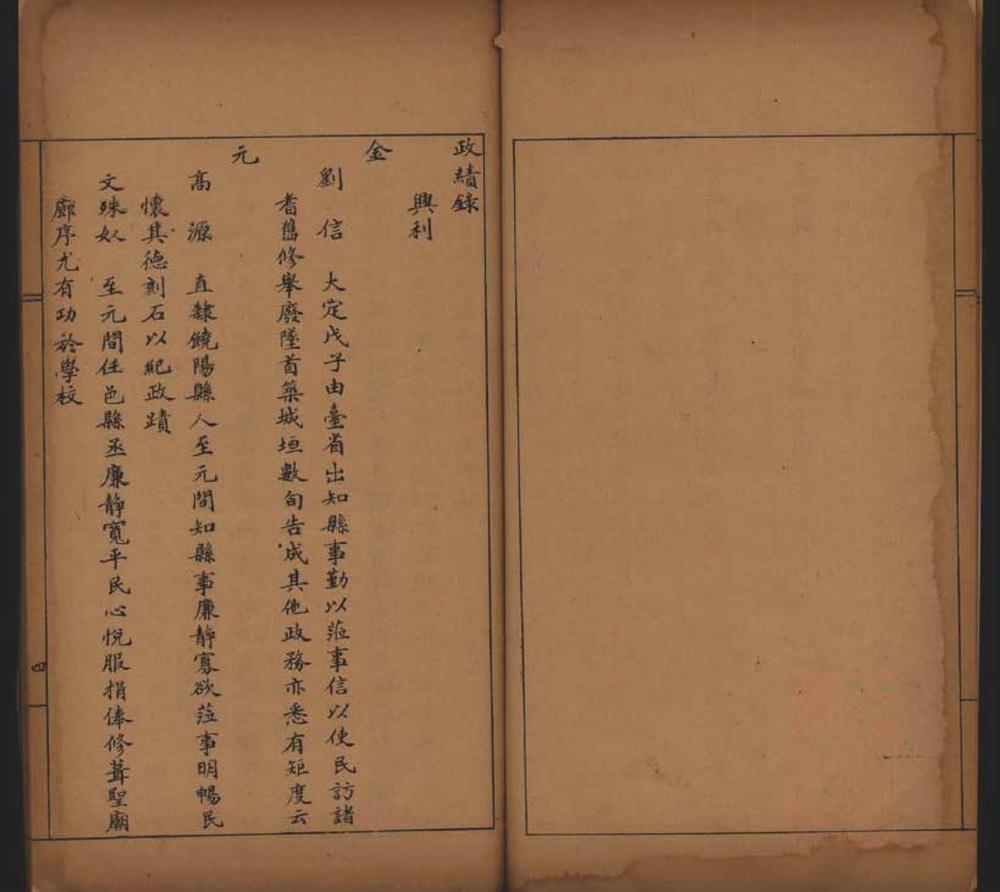 政績錄
興利
金
劉信 大定戊子由臺省出知縣事勤以蒞事信以使民訪諸
耆舊修舉廢墜首築城垣數旬告成其他政務亦悉有矩度云
元
高源 直隸饒陽縣人至元間知縣事廉靜寡欲蒞事明暢民
懷其德刻石以紀政蹟
文殊奴 至元間任邑縣丞廉靜寬平民心悅服捐俸修葺聖廟
廊序尤有功於學校
四